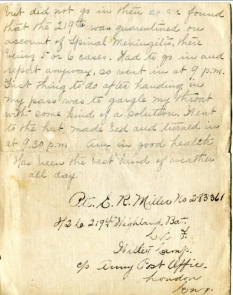 but did not go in there as we found
that the 219th was quarantined on
account of Spinal Meningitis, there
being 5 or 6 cases. Had to go in and
report anyway, so went in at 9 p.m.
First thing to do after handing in
my pass was to gargle my throat
with some kind of a solution. Went
to the hut made bed and turned in
at 9.30 p.m. Am in good health
Has been the best kind of weather
all day.
Pte. E. R. Miller No 283361
219th Highland Bat.
Witley Camp.
c/o Army Post Office.
London
Eng.